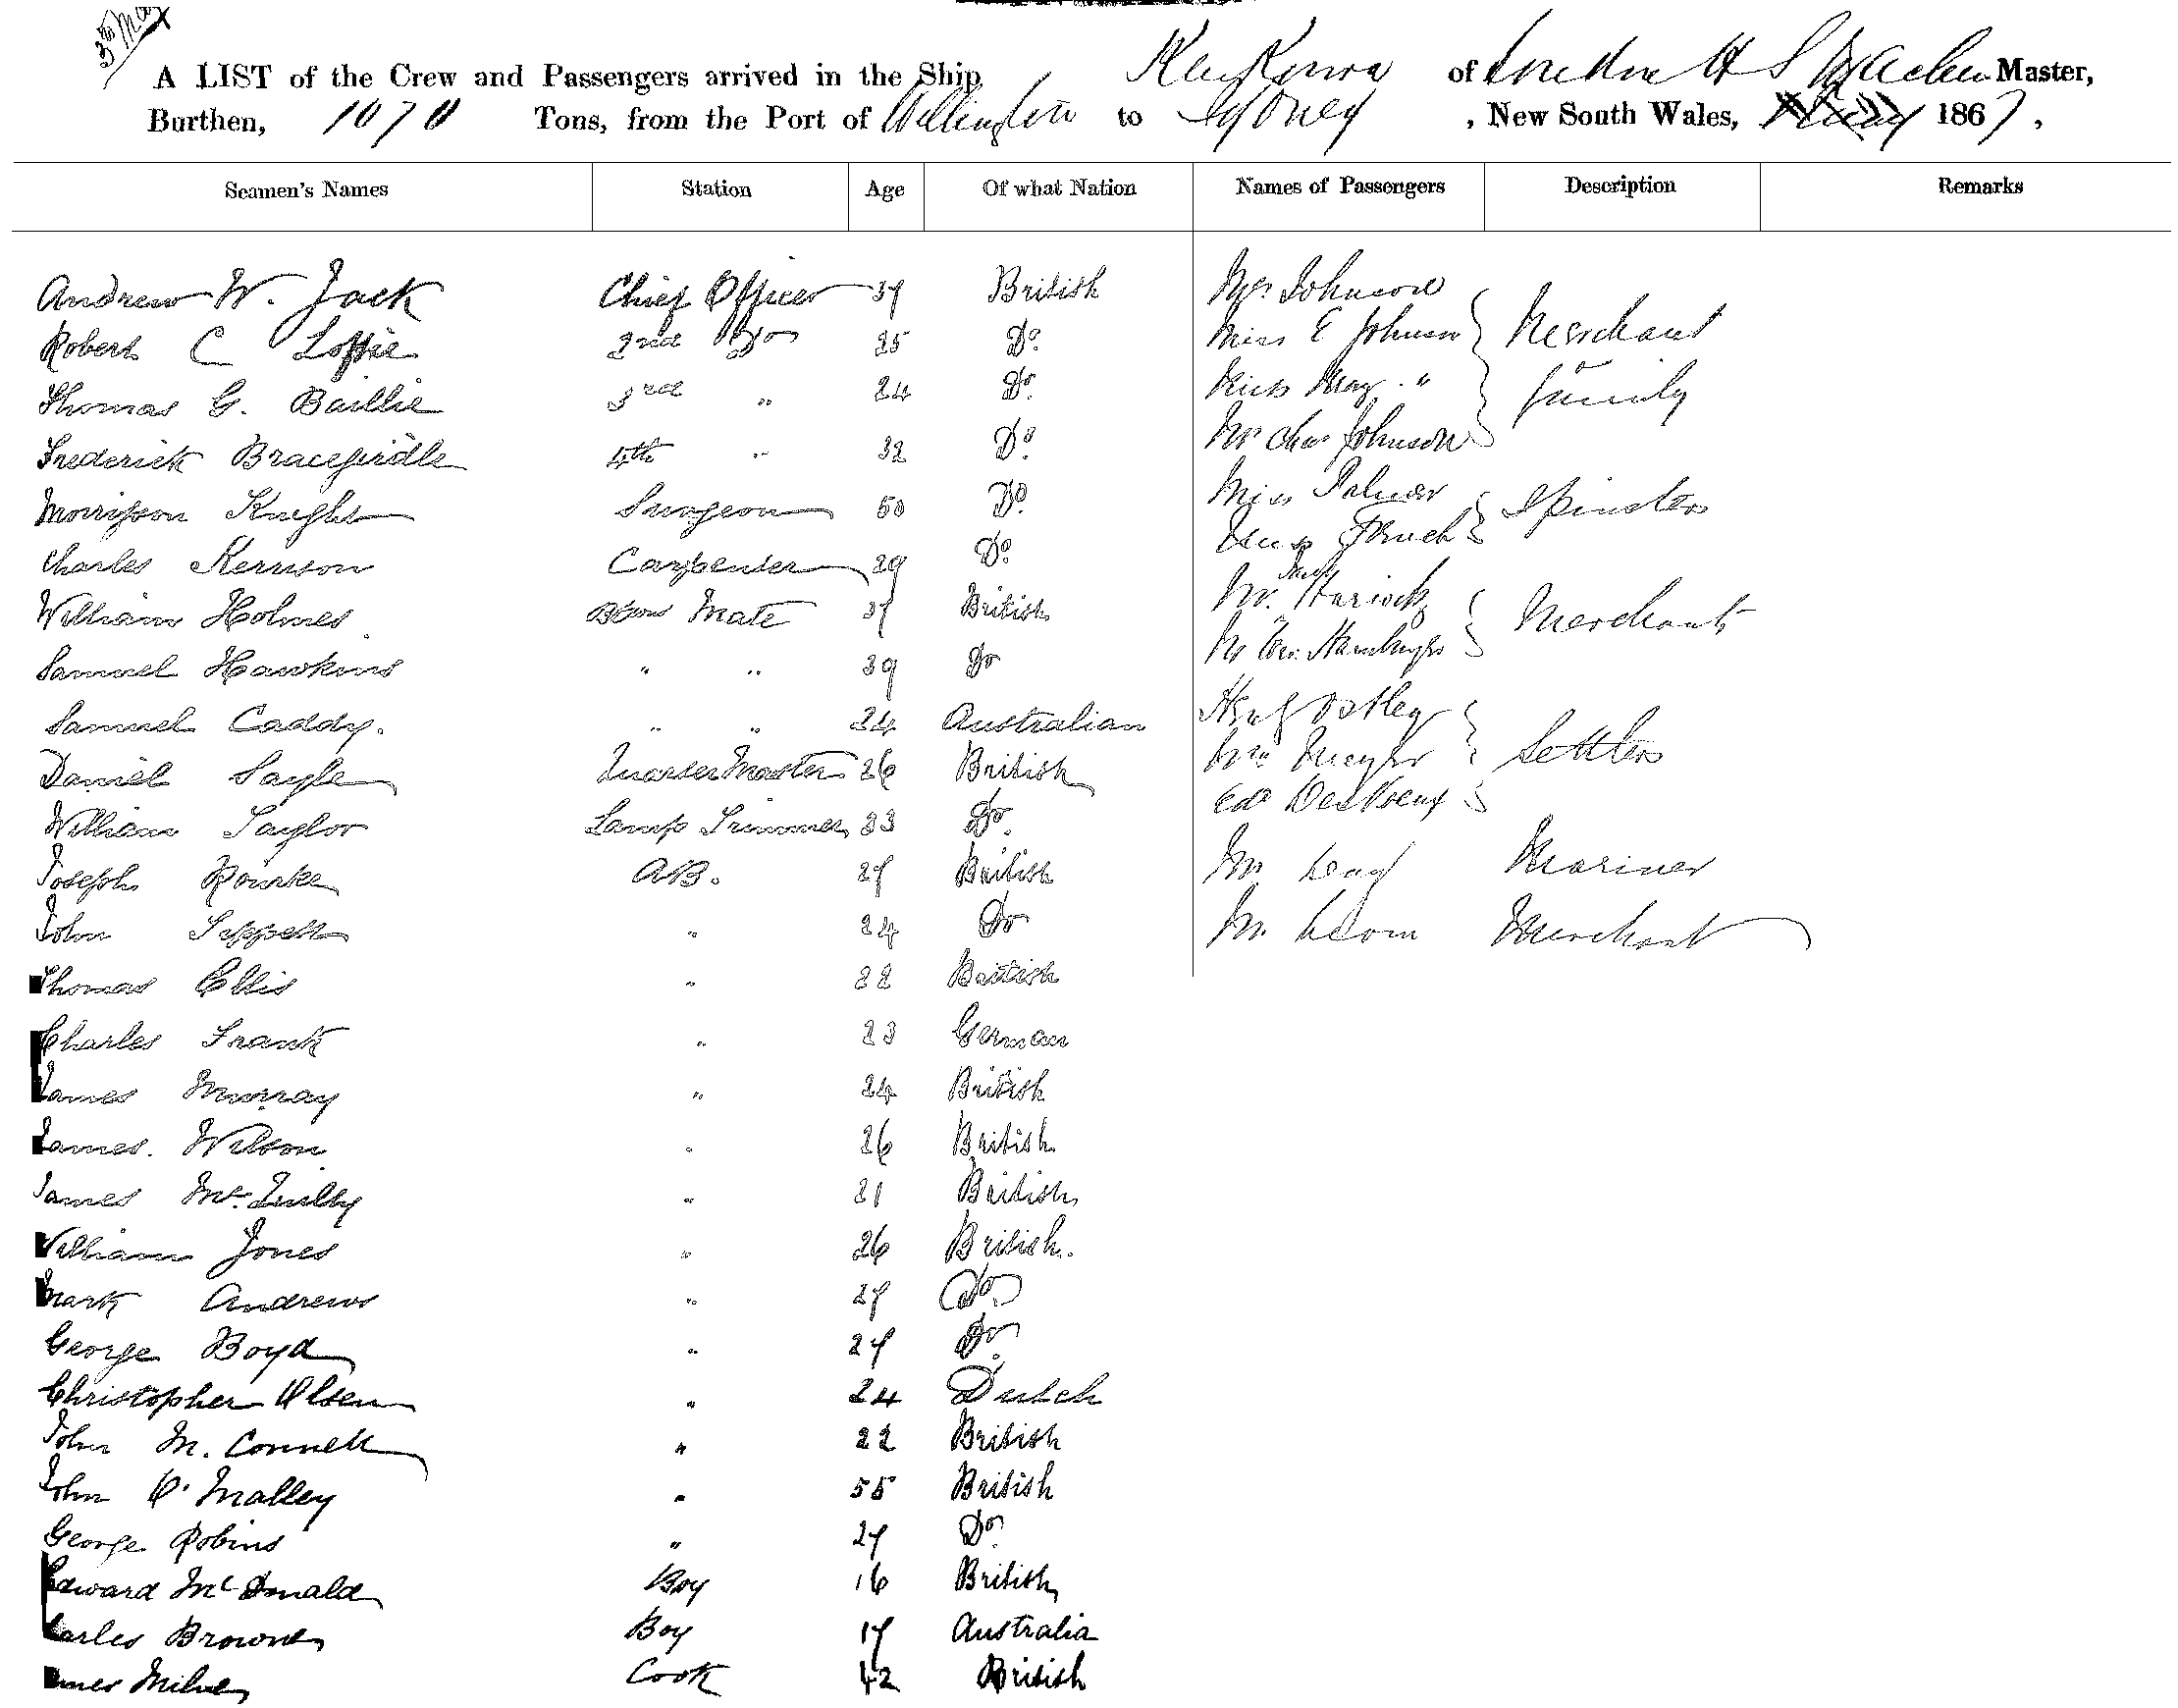 3rd May
A LIST of the Crew and Passengers arrived in the Ship KaiKoura of London H S Machen Master,
Burthen, 1070 Tons, from the Port of Wellington to Sydney , New South Wales, May 1867 ,
Seamen's Names Station Age Of what Nation Names of Passengers Description Remarks
Andrew W. Jack Chief Officer 37 British Mrs Johnson
Robert C 2nd Do 25 Do. Miss E Johnson Merchant
Thomas G. Baillie 3rd " 24 Do. Miss May " family
Frederick Bracegirdle 4th " 32 Do. Mr Chas Johnson
Morrison Knight Surgeon 50 Do. Miss Palmer Spinsters
Charles Kerrison Carpenter 29 Do. Miss French
William Holmes Bosuns Mate 37 British Mr. Merchants
Samuel Hawkins " " 39 Do Mr
Samuel Caddy. " " 24 Australian
Daniel Sayle Quarter Master 26 British Settlers
William Taylor Lamp Trimmer 33 Do. Ed DesVoeux
Joseph Rourke AB. 27 British Mr Mariner
John Tippett " 24 Do Mr. Merchant
Thomas Ellis " 22 British
Charles Frank " 23 German
James Murray " 24 British
James. Wilson " 26 British
James " 21 British
William Jones " 26 British.
Mark Andrews " 27 Do.
George Boyd " 27 Do.
Christopher Olsen " 24 Dutch
John M. Connell " 22 British
John O'Malley " 55 British
George Robins " 27 Do
Edward McDonald Boy 16 British
Charles Browne Boy 17 Australia
James Milne Cook 42 British